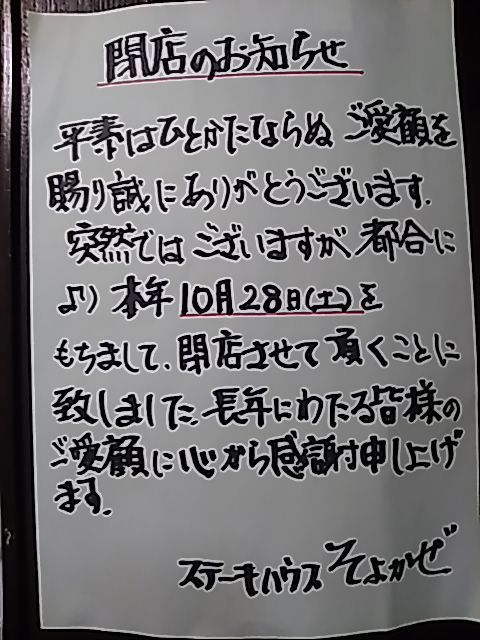 閉店のお知らせ
平素はひとかたならぬ ご愛顧を
賜り誠にありがとうございます.
突然ではございますが 都合に
より 本年 10月28日(土)を
もちまして、閉店させて頂くことに
致しました. 長年にわたる皆様の
ご愛顧に心から感謝申し上げ
ます.
ステーキハウス そよかぜ